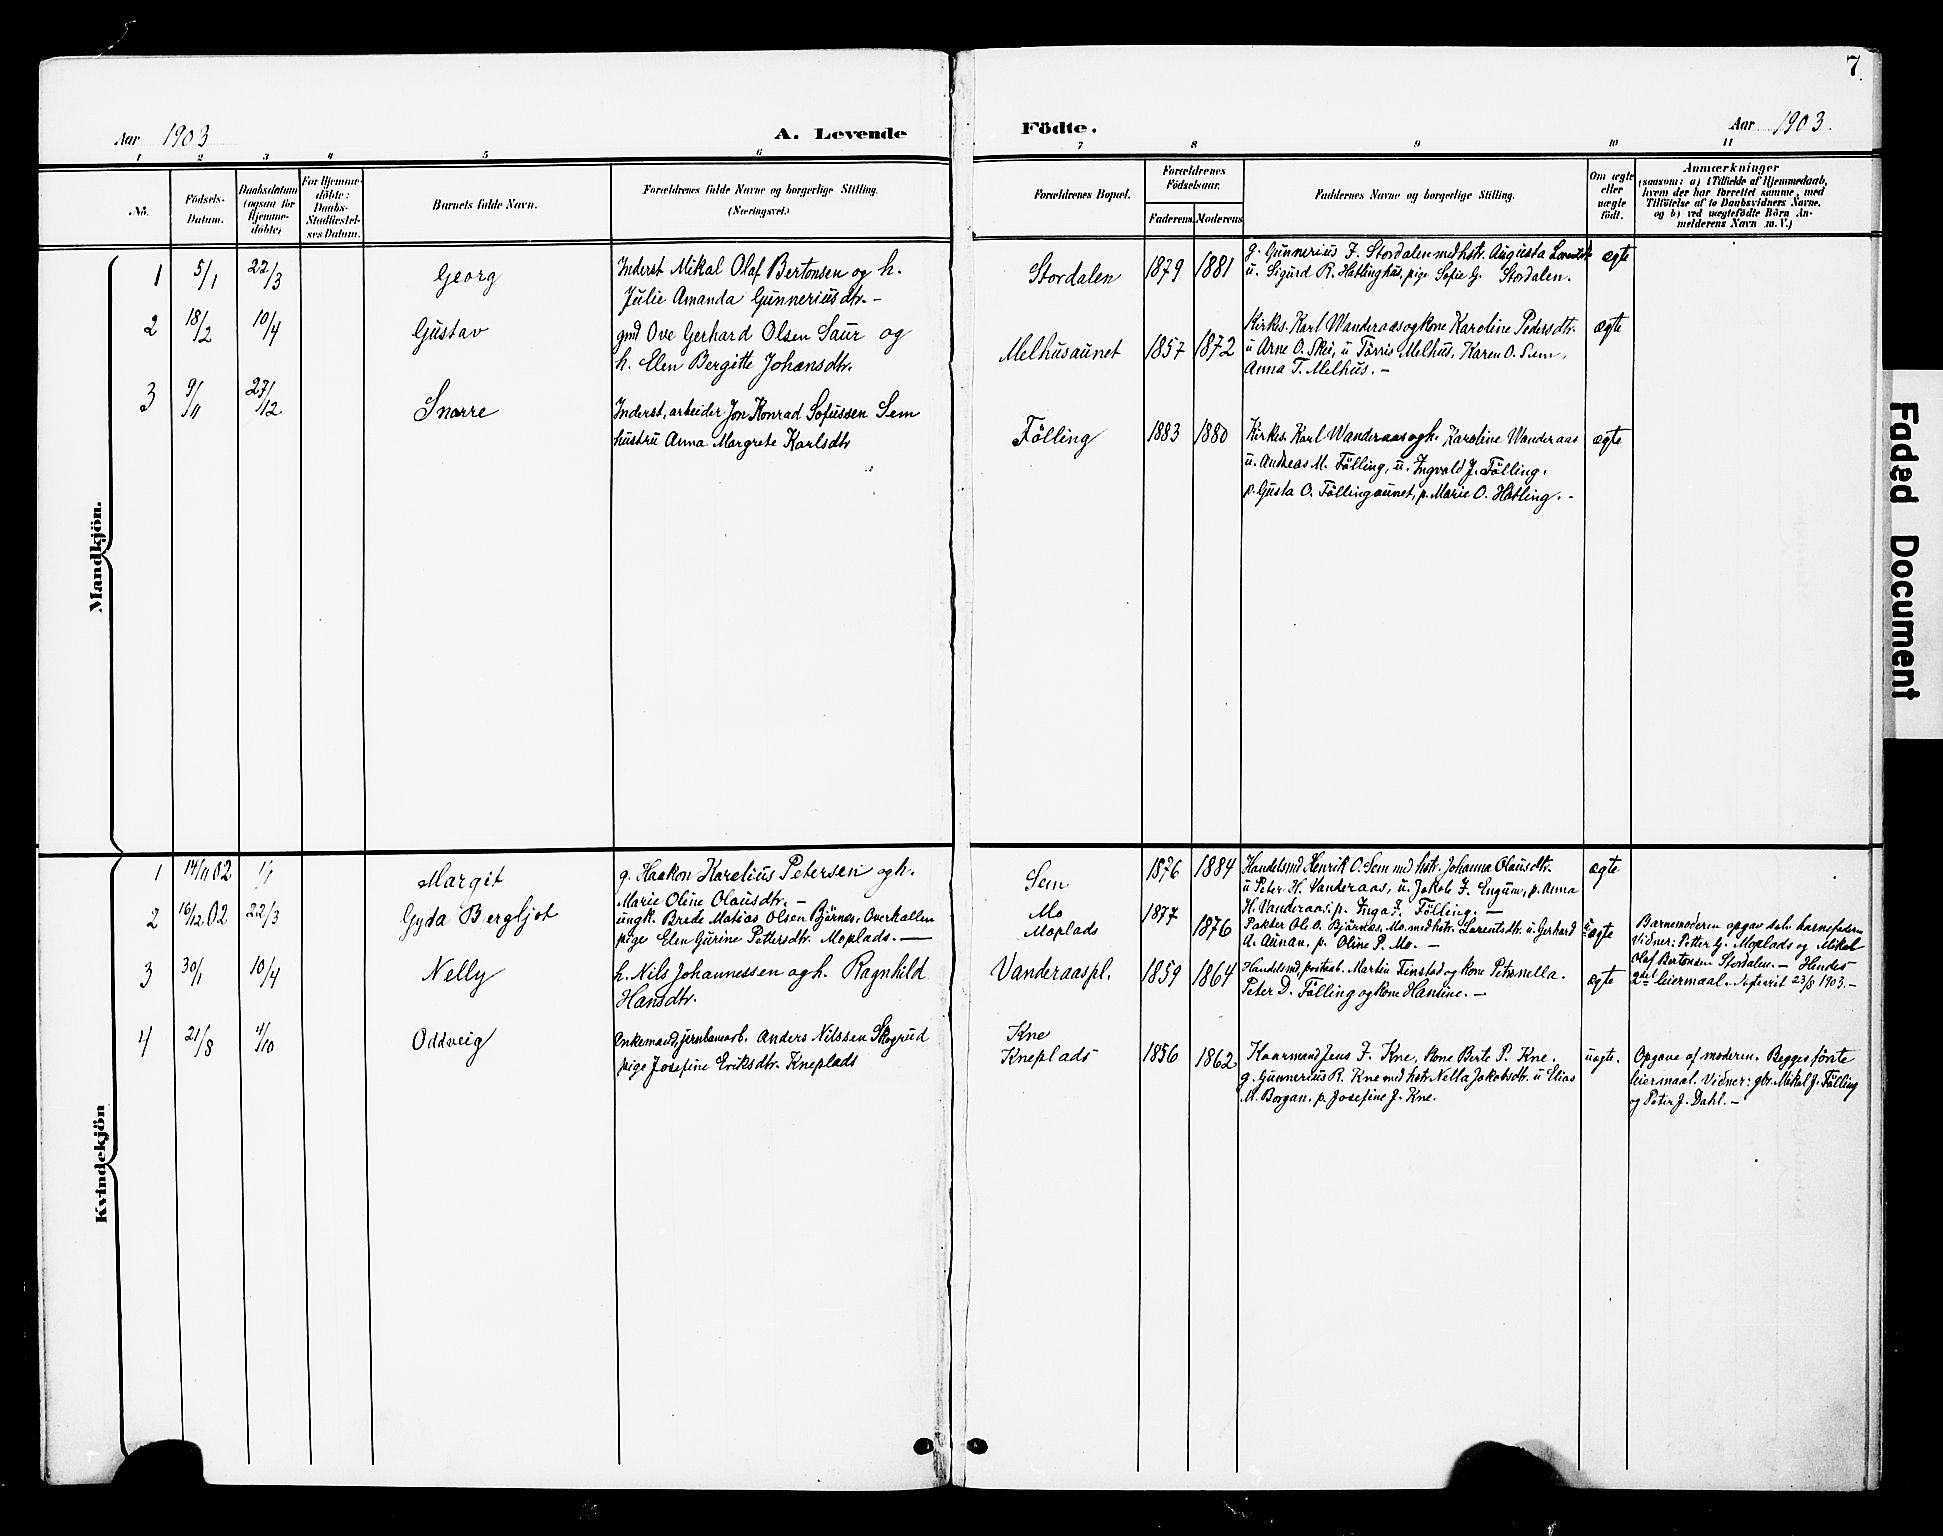 7.
Aar 1903
A. Levende Födte.
Aar 1903.
1 2 3 4 5 6 7 8 9 10 11
No.
Födsels-Datum.
Daabsdatum (ogsaa for Hjemme-döbte)
For Hjemme-döbte: Daabs-Stadfæstel-ses Datum.
Barnets fulde Navn.
Forældrenes fulde Navne og borgerlige Stilling. (Næringsvei.)
Forældrenes Bopæl.
Forældrenes Födselsaar.
Faderens. Moderens
Faddernes Navne og borgerlige Stilling.
Om ægte eller uægte födt.
Anmærkninger
(saasom: a) i Tilfælde af Hjemmedaab,
hvem der har forrettet samme, med
Tilföielse af to Daabsvidners Navne.
og b) ved uægtefödte Börn An-
melderens Navn m. V.)
Mandkjön.
1 5/1 22/3 Georg
Inderst Mikal Olaf Bertonsen og h.
Julie Amanda Gunneriusdtr. -
Stordalen 1879 1881
g. Gunnerius F. Stordalen med hstr. Augusta
u. Sigurd R. Hatlinghus, pige Sofie G. Stordalen.
ægte
2 18/2 10/4 Gustav
gmd Ove Gerhard Olsen Saur og
h. Elen Bergitte Johansdtr.
Melhusaunet 1857 1872
Kirkes. Karl Wanderaas og kone Karoline Pedersdtr.
u Arne O. Skei, u Torris Melhus, Karen O. Sem,
Anna T. Melhus. -
ægte
3 9/11 27/12 Snorre
Inderst, arbeider Jon Konrad Sofussen Sem
hustru Anna Margrete Karlsdtr
Fölling 1883 1880
Kirkes. Karl Wanderaas og h. Karoline Wanderaas
u. Andreas M. Fölling, u. Ingvald J. Fölling.
p. Gusta O. Föllingaunet, p. Marie O. Hatling. -
ægte
Kvindekjön
1 14/11 02 1/1 Margit
g. Haakon Karelius Petersen og h.
Marie Oline Olausdtr. -
Sem 1876 1884
Handelsmd Henrik O. Sem med hstr. Johanna Olausdtr.
u Peter H. Vanderaas, u. Jakob F. Engum, p. Anna
H. Vanderaas, p. Inga F. Fölling. -
ægte
2 16/12 02 22/3 Gyda Bergljot
ungk. Brede Matias Olsen Björnes, Overhallen
pige Elen Gurine Pettersdtr. Moplads. -
Mo
Moplads 1877 1876
Pakter Ole O. Björnes, Mo. med hstr. Lorentsdtr. u Gerhard
A. Aunan, p. Oline P. Mo. -
uægte
Barnemoderen opgav selv barnefaderen
Vidner: Petter G. Moplads og Mikal
Olaf Bertonsen Stordalen. - Hendes
2det leiermaal. 23/8 1903. -
3 30/1 10/4 Nelly
h. Nils Johannessen og h. Ragnhild
Hansdtr.
Vanderaaspl. 1859 1864
Handelsmd, postaab. Martin Finstad og kone Petronella.
Peter D. Fölling og kone Hansine. -
ægte
4 21/8 4/10 Oddveig
Enkemand, jernbanearb. Anders Nilssen Skogrud
pige Josefine Eriksdtr. Kneplads
Kne
Kneplads 1856 1862
Kaarmand Jens F. Kne, kone Berte P. Kne.
g. Gunnerius R. Kne med hstr. Nella Jakobsdtr. u Elias
M. Borgan. p. Josefine J. Kne.
uægte.
Opgave af moderen. Begges förste
leiermaal. Vidner: gbr. Mikal J. Fölling
og Peter J. Dahl. -
Faded Document